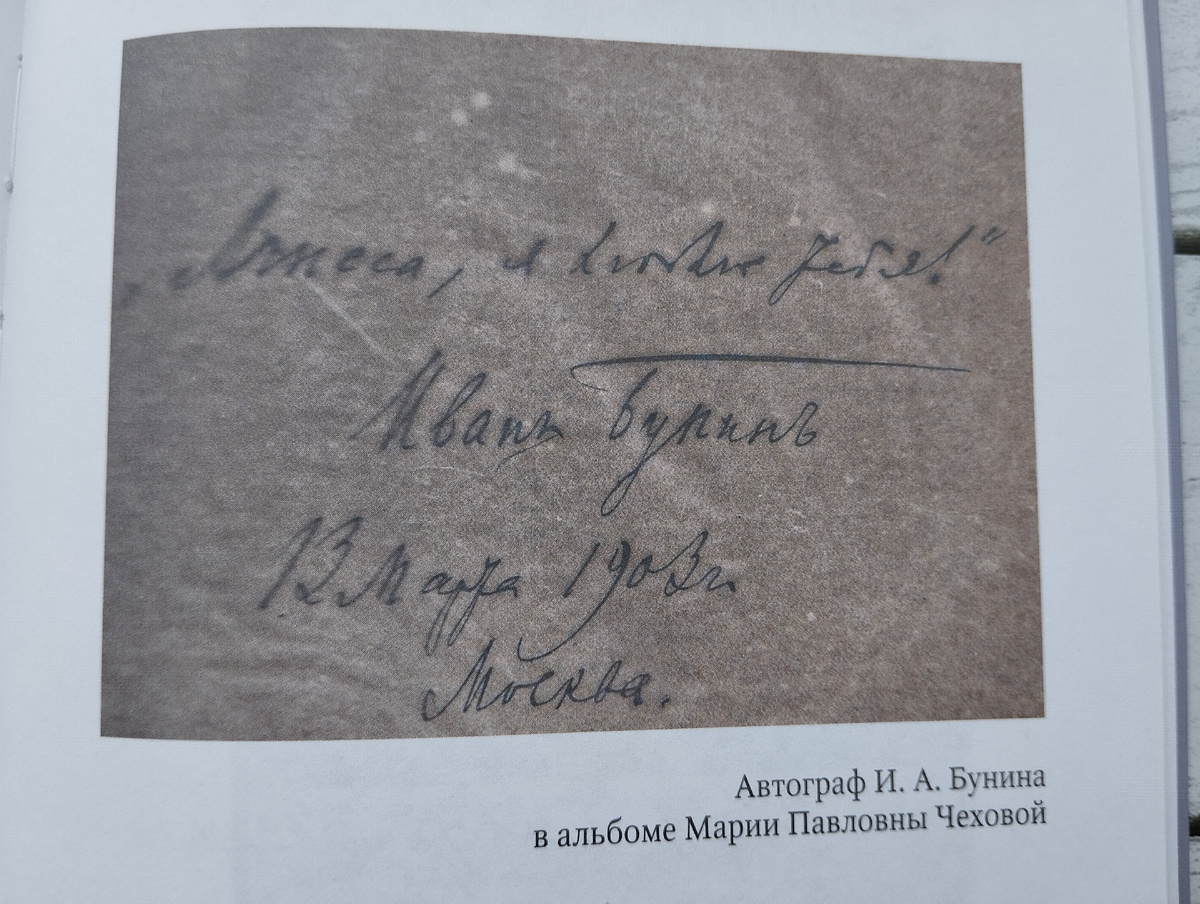 я люблю тебя!"
Иванъ Бунинъ
13 Марта 1903 г.
Москва.
Автограф И. А. Бунина
в альбоме Марии Павловны Чеховой